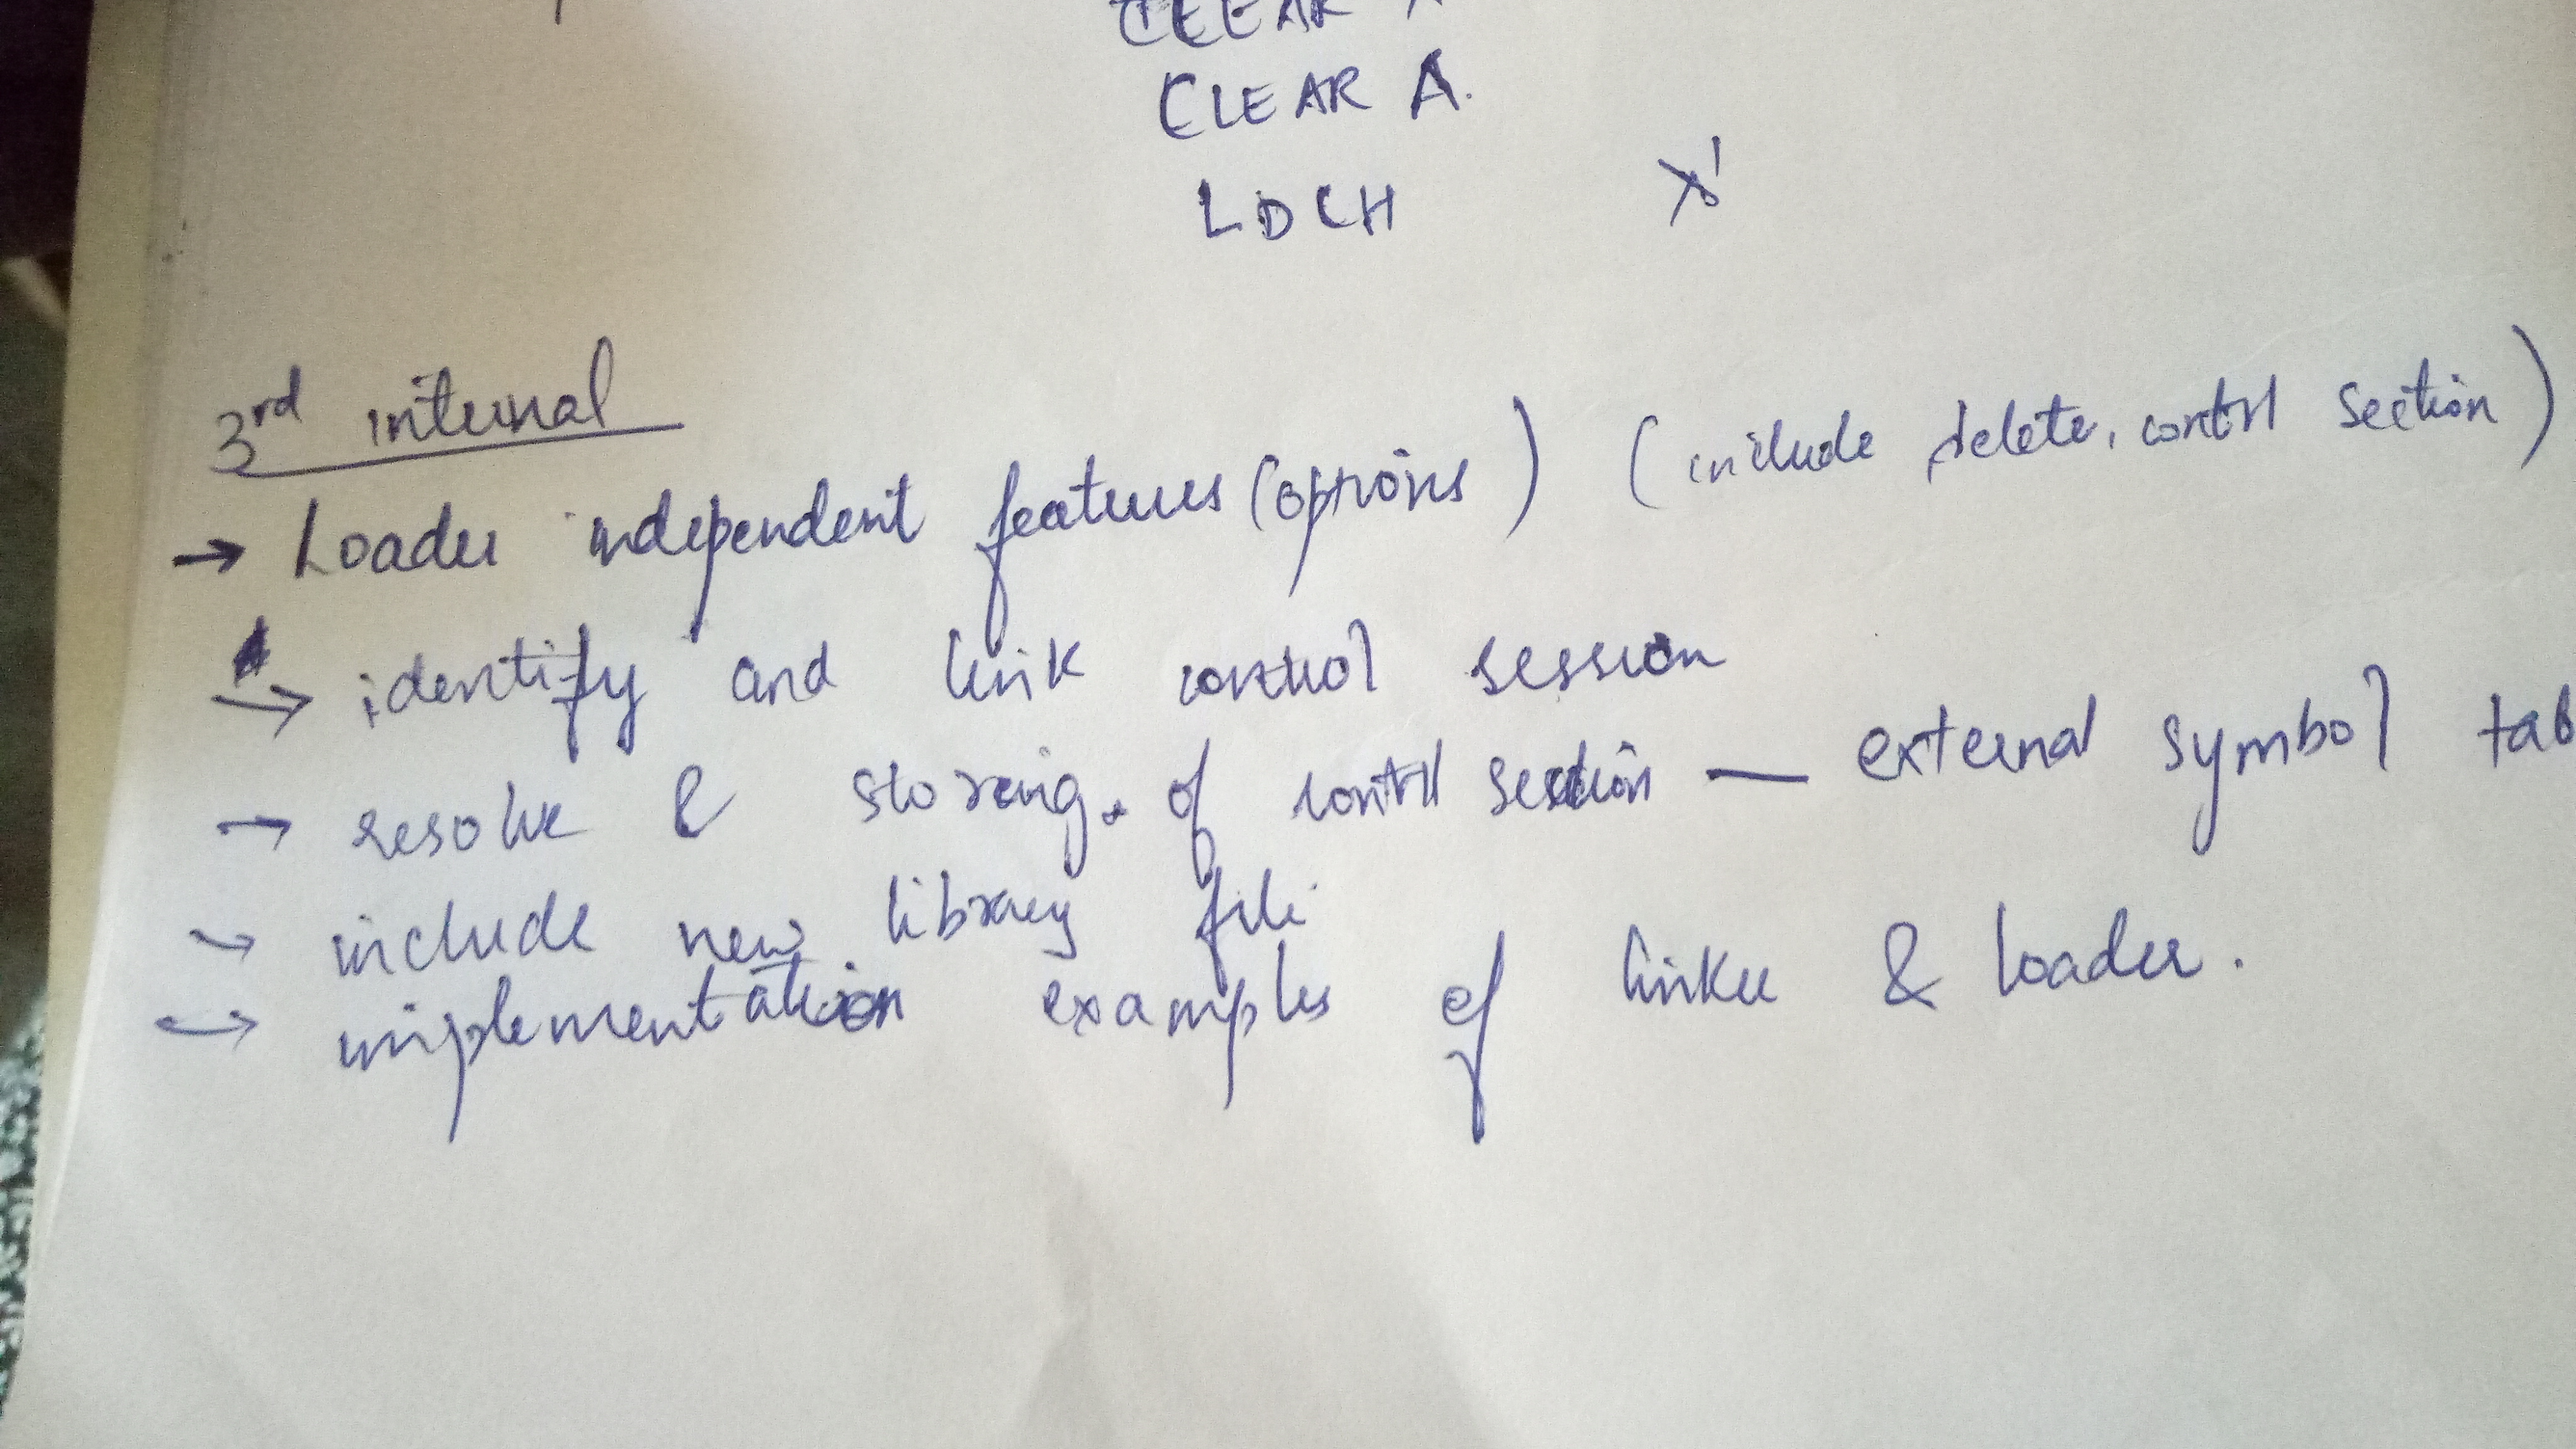 CLEAR
CLEAR A.
LDCH X'
3rd internal
→ Loader independent features (options) (include delete, contrl section)
→ identify and link control session
→ resolve & storing. of contrl section — external symbol tab
→ include new library file
→ implementation examples of linker & loader.